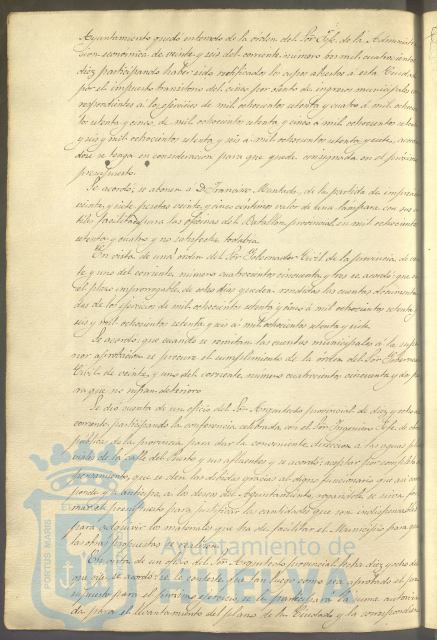 Ayuntamiento quedó enterado de la orden del Sor. Jefe de la Administra
cion económica de veinte y seis del corriente, número dos mil cuatrocientos
diez participando haber sido rectificados los cupos abiertos á esta Ciudad
por el impuesto transitorio del cinco por ciento de ingresos municipales co
rrespondientes á los ejercicios de mil ochocientos setenta y cuatro á mil ocho
cientos setenta y cinco, de mil ochocientos setenta y cinco á mil ochocientos setenta
y seis y mil ochocientos setenta y seis á mil ochocientos setenta y siete, acordan
dose se tenga en consideracion para que quede consignada en el próximo
presupuesto.
Se acordó: se abonen a D. Francisco Muntada, de la partida de imprevistos
veinte y siete pesetas veinte y cinco céntimos valor de una lampara con sus u
tiles facilitada para las oficinas del Batallon provincial en mil ochocientos
setenta y cuatro y no satisfecha todavia.
En vista de una orden del Sor. Gobernador Civil de la provincia, de vein
te y uno del corriente, número cuatrocientos cincuenta y tres se acordó: que en
el plazo improrrogable de ocho dias queden rendidas las cuentas documenta
das de los ejercicios de mil ochocientos setenta y cinco á mil ochocientos setenta y
seis y mil ochocientos setenta y seis á mil ochocientos setenta y siete.
Se acordó: que cuando se remitan las cuentas municipales á la supe
rior aprobacion se procure el cumplimiento de la orden del Sor. Gobernador
Civil de veinte y uno del corriente, número cuatrocientos cincuenta y dos pa
ra que no sufran deterioro.
Se dió cuenta de un oficio del Sor. Arquitecto provincial de diez y ocho del
corriente, participando la conferencia celebrada con el Sor. Ingeniero Jefe de obras
públicas de la provincia para dar la conveniente direccion á las aguas plu
viales de la calle del Puerto y sus afluentes y se acordó: aceptar por completo el
pensamiento, que se den las debidas gracias al digno funcionario que así corres
ponde y se anticipa, á los deseos del Ayuntamiento, rogándole se sirva for
mar el presupuesto para justificar las cantidades que son indispensables
para adquirir los materiales que ha de facilitar el Municipio para que
las obras propuestas se realicen.
En vista de un oficio del Sor. Arquitecto provincial fecha diez y ocho del
que se acordó: se le conteste que tan luego como sea aprobado el pre
supuesto para el próximo ejercicio, se le participará la suma autoriza
da para el levantamiento del plano de la Ciudad y la correspondien
PORTUS MAGNUS
EL
Ayuntamiento de